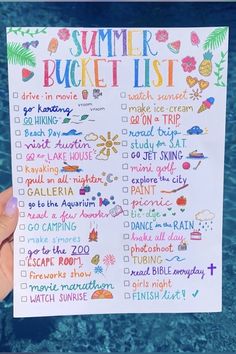 SUMMER
BUCKET LIST
drive-in movie
VROOM
VROOM
go karting
GO HIKING
Beach Day
visit Austin
GO to LAKE HOUSE
Kayaking
pull an all-nighter
GALLERIA
go to the Aquarium
read a few books
GO CAMPING
make s'mores
go to the ZOO
ESCAPE ROOM
fireworks show
movie marathon
WATCH SUNRISE
watch sunset
make ice-cream
GO ON A TRIP
road trip
study for S.A.T.
GO JET SKIING
mini golf
explore the city
PAINT
picnic
tie-dye
DANCE in the RAIN
bake all day
photoshoot
TUBING
read BIBLE everyday
girls night
FINISH list!